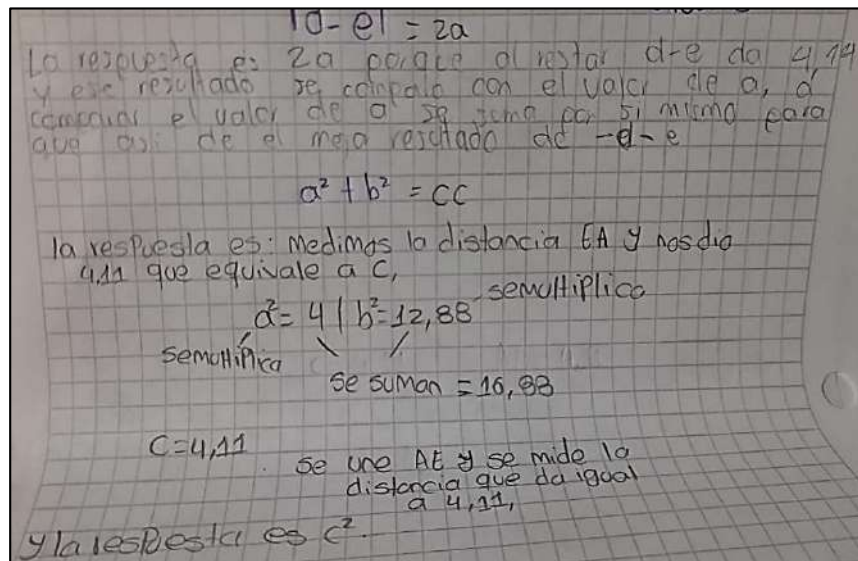 |d-e| = 2a
La respuesta es 2a porque al restar d-e da 4,14
y ese resultado se compalo con el valor de a, a
el valor de a se suma por si mismo para
que asi de el resultado de -d-e
a² + b² = CC
la respuesta es: Medimos la distancia EA y nos dio
4,11 que equivale a C,
a²= 4 | b²=12,88 semultiplica
semultiplica
se suman = 16,88
C=4,11
se une AE y se mide la
distancia que da igual
a 4,11,
y la respuesta es c².